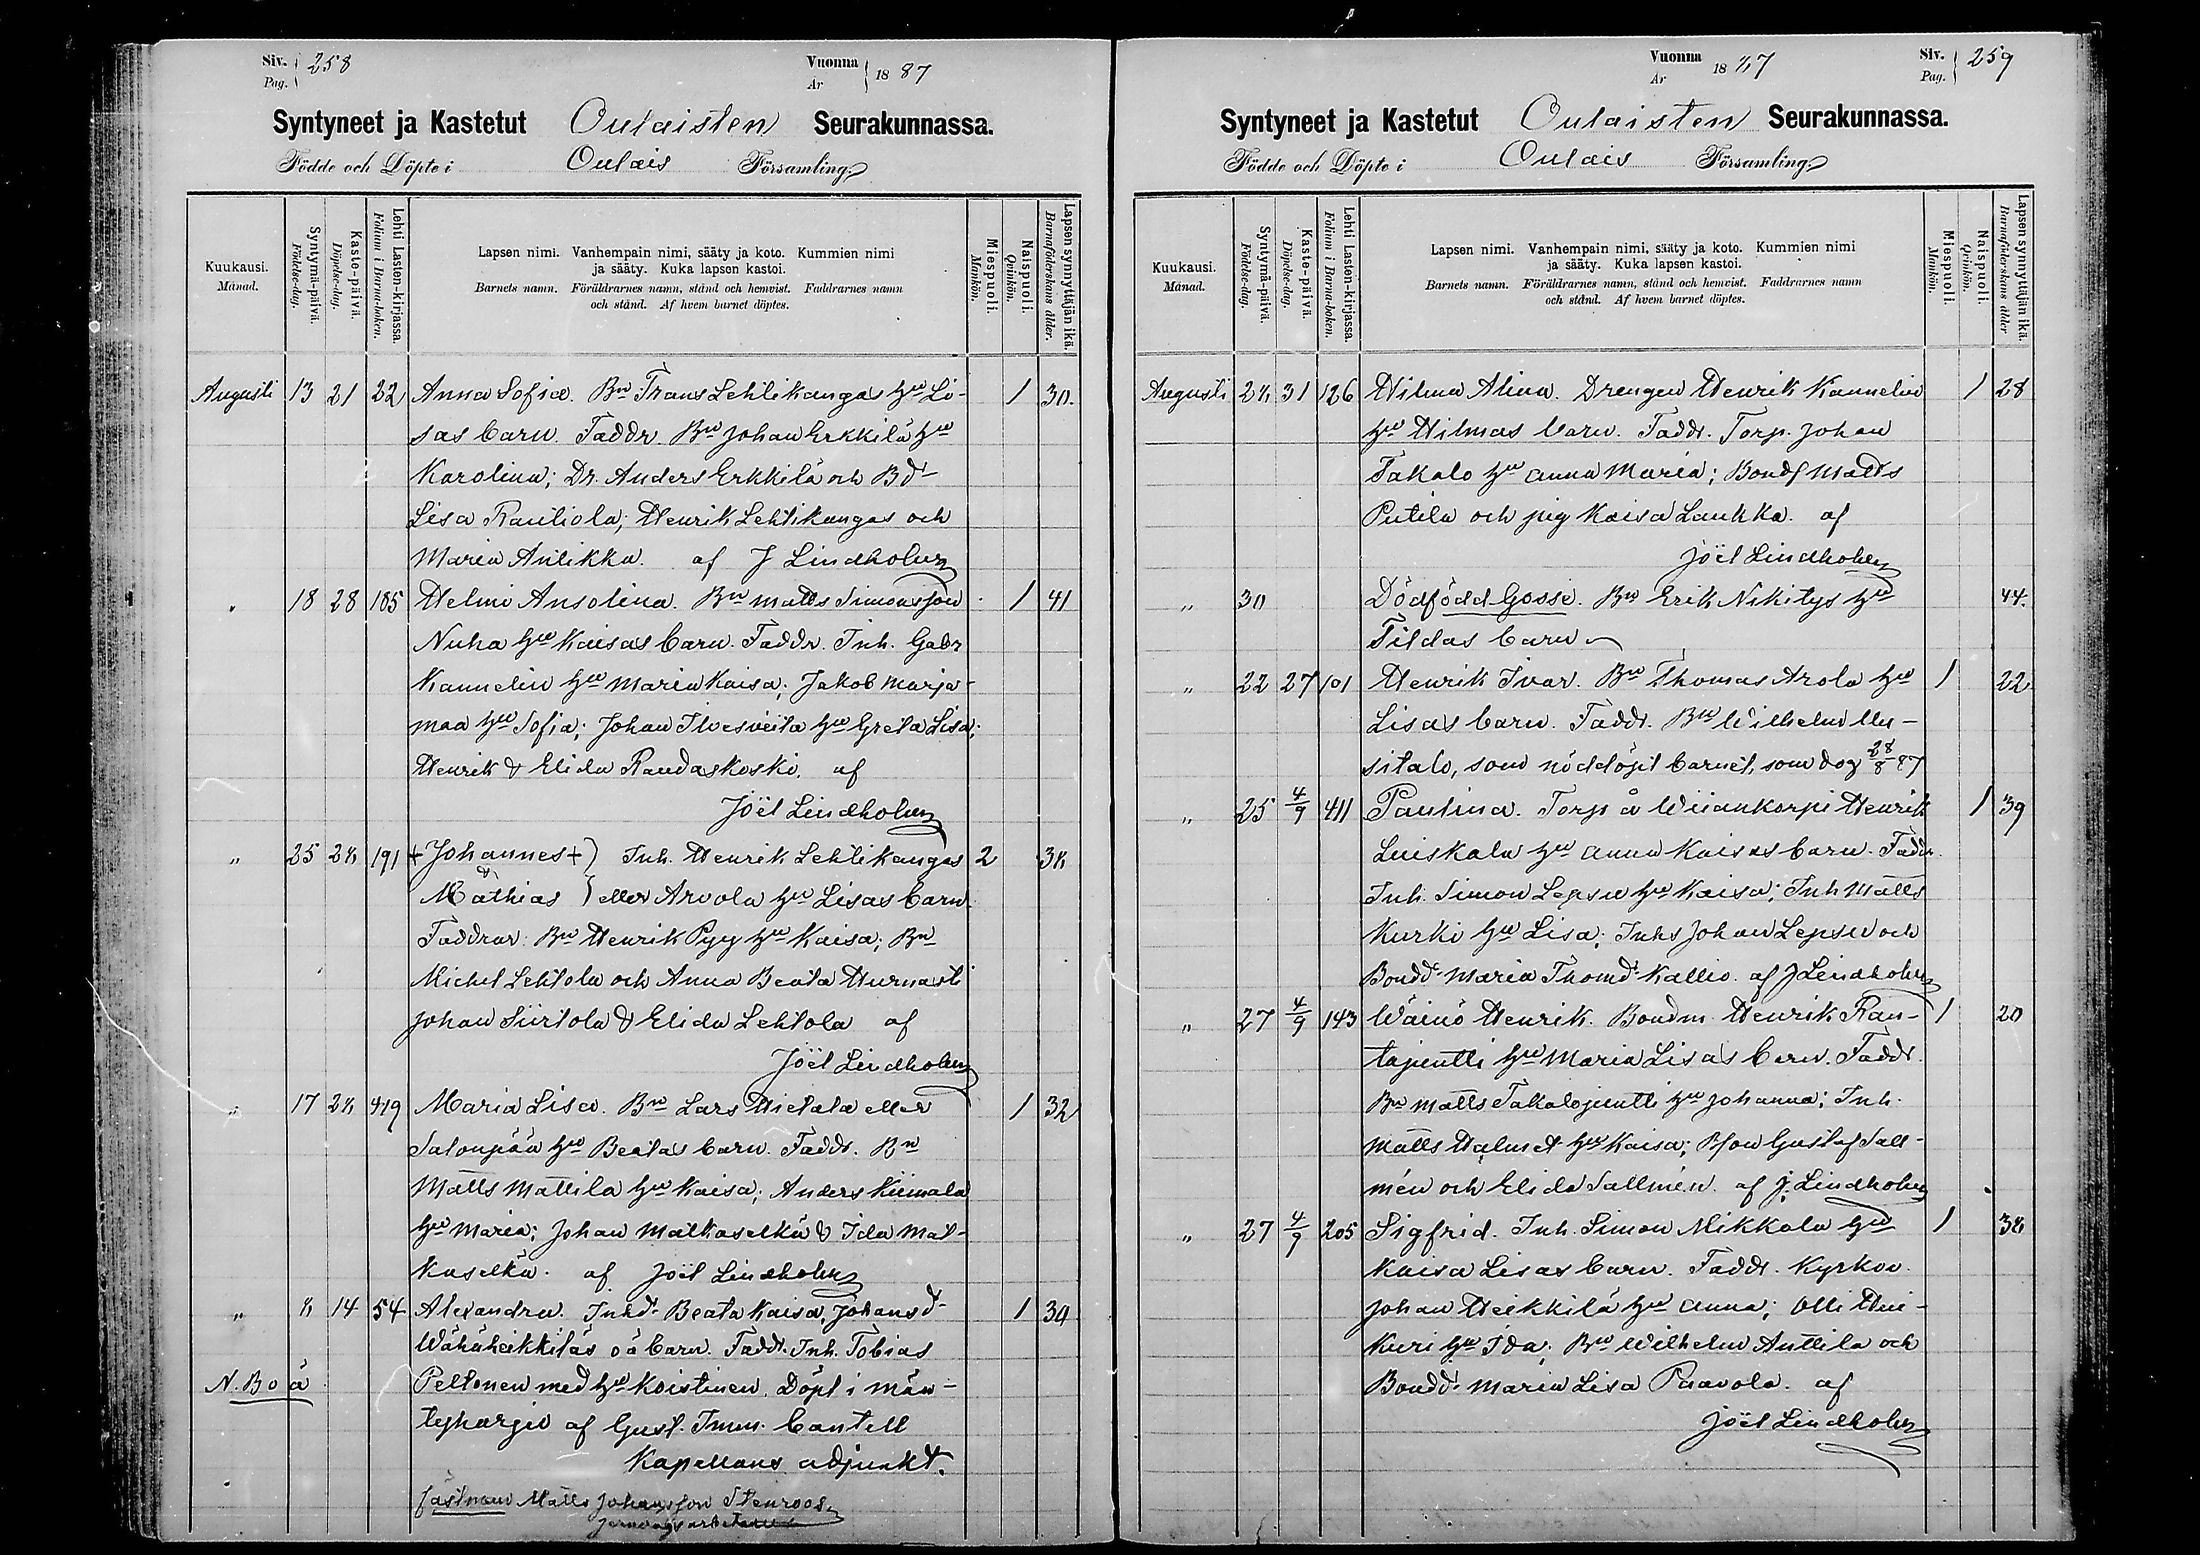 Siv. Pag. 258
Vuonna År 1887
Syntyneet ja Kastetut Oulaisten Seurakunnassa.
Födde och Döpte i Oulais Församling.
Kuukausi. Månad.
Syntymä-päivä. Födelse-dag.
Kaste-päivä. Döpelse-dag.
Lehti Lasten-kirjassa. Folium i Barna-boken.
Lapsen nimi. Vanhempain nimi, sääty ja koto. Kummien nimi
ja sääty. Kuka lapsen kastoi.
Barnets namn. Föräldrarnes namn, stånd och hemvist. Faddrarnes namn
och stånd. Af hvem barnet döptes.
Miespuoli. Mankön.
Naispuoli. Qvinkön.
Lapsen synnyttäjän ikä. Barnaföderskans ålder.
Augusti 13 21 22 Anna Sofia. Bn Frans Lehtikangas hu Li- 1 30.
sas barn. Faddr. Bn Johan Erkkilä hu
Karolina; Dr. Anders Erkkilä och Bd
Lisa Rautiola; Henrik Lehtikangas och
Maria Anlikka. af J Lindholm
" 18 28 185 Helmi Ansolina. Bn Matts Simonsson 1 41
Nuha hu Kaisas barn. Faddr. Inh. Gabr
Kannelin hu Maria Kaisa; Jakob Marja-
maa hu Sofia; Johan Ilvesviita hu Greta Lisa;
Henrik & Elida Raudaskoski. af
Joël Lindholm
" 25 28 191 + Johannes +) Inh. Henrik Lehtikangas 2 38
& Mathias } eller Arvola hu Lisas barn
Faddrar. Bn Henrik Pyy hu Kaisa; Bn
Michel Lehtola och Anna Beata Hurnasti
Johan Siirtola & Elida Lehtola af
Joël Lindholm
" 17 28 419 Maria Lisa. Bn Lars Hietala eller 1 32
Salonpää hu Beatas barn. Faddr. Bn
Matts Mattila hu Kaisa; Anders Kiimala
hu Maria; Johan Matkaselkä & Ida Mat-
kaselkä. af Joël Lindholm
" 8 14 54 Alexandra. Inhd. Beata Kaisa Johansd- 1 30
Wähäheikkiläs oä barn. Faddr. Inh. Tobias
N. B oä Peltonen med hu Koistinen. Döpt i Män-
tyharju af Gust. Imm. Cantell
Kapellans adjunkt.
fästman Matts Johansson Stenroos
jernvägsarbetare
Vuonna År 1887
Siv. Pag. 259
Syntyneet ja Kastetut Oulaisten Seurakunnassa.
Födde och Döpte i Oulais Församling.
Kuukausi. Månad.
Syntymä-päivä. Födelse-dag.
Kaste-päivä. Döpelse-dag.
Lehti Lasten-kirjassa. Folium i Barna-boken.
Lapsen nimi. Vanhempain nimi, sääty ja koto. Kummien nimi
ja sääty. Kuka lapsen kastoi.
Barnets namn. Föräldrarnes namn, stånd och hemvist. Faddrarnes namn
och stånd. Af hvem barnet döptes.
Miespuoli. Mankön.
Naispuoli. Qvinkön.
Lapsen synnyttäjän ikä. Barnaföderskans ålder.
Augusti 28 31 126 Hilma Alina. Drengen Henrik Kannelin 1 28
hu Hilmas barn. Faddr. Torp. Johan
Takalo hu Anna Maria; Bonds Matts
Putila och pig Kaisa Laukka. af
Joël Lindholm
" 30 Dödfödd Gosse. Bn Erik Nikitys hu 44.
Tildas barn
" 22 27 101 Henrik Ivar. Bn Thomas Arola hu 1 22
Lisas barn. Faddr. Bn Wilhelm Uu-
sitalo, som nöddöpt barnet, som dog 28/8 87
" 25 4/9 411 Paulina. Torp å Wiiankorpi Henrik 1 39
Luiskala hu Anna Kaisas barn. Faddr.
Inh. Simon Lepsu hu Kaisa; Inh Matts
Kurki hu Lisa; Inhs Johan Lepsu och
Bondd. Maria Thomd. Kallio. af J Lindholm
" 27 4/9 143 Wäinö Henrik. Bondm. Henrik Ran- 1 20
tapentti hu Maria Lisas barn. Faddr.
Bn Matts Takalopentti hu Johanna; Inh.
Matts Halmet hu Kaisa; Bson Gustaf Sall-
mén och Elida Sallmén. af J. Lindholm
" 27 4/9 205 Sigfrid. Inh. Simon Mikkola hu 1 38
Kaisa Lisas barn. Faddr. Kyrkov.
Johan Heikkilä hu Anna; Olli Hui-
kuri hu Ida; Bn Wilhelm Anttila och
Bondd. Maria Lisa Paavola. af
Joël Lindholm